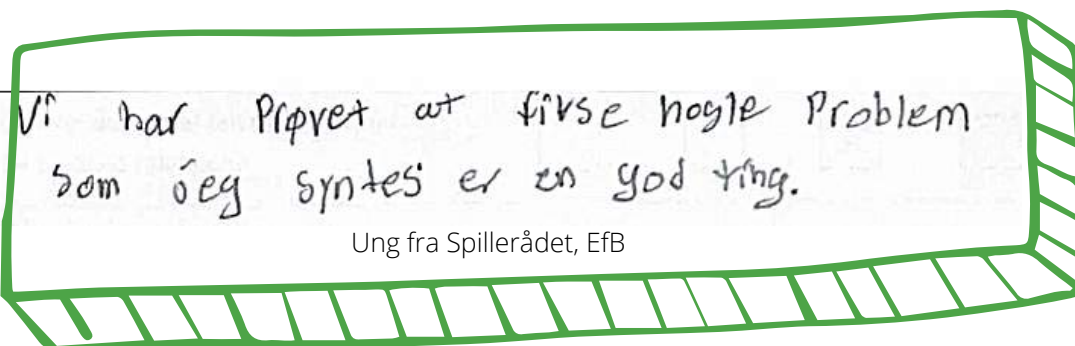 Vi har Prøvet at fivse nogle Problem
som jeg syntes er en god ting.
Ung fra Spillerådet, EfB